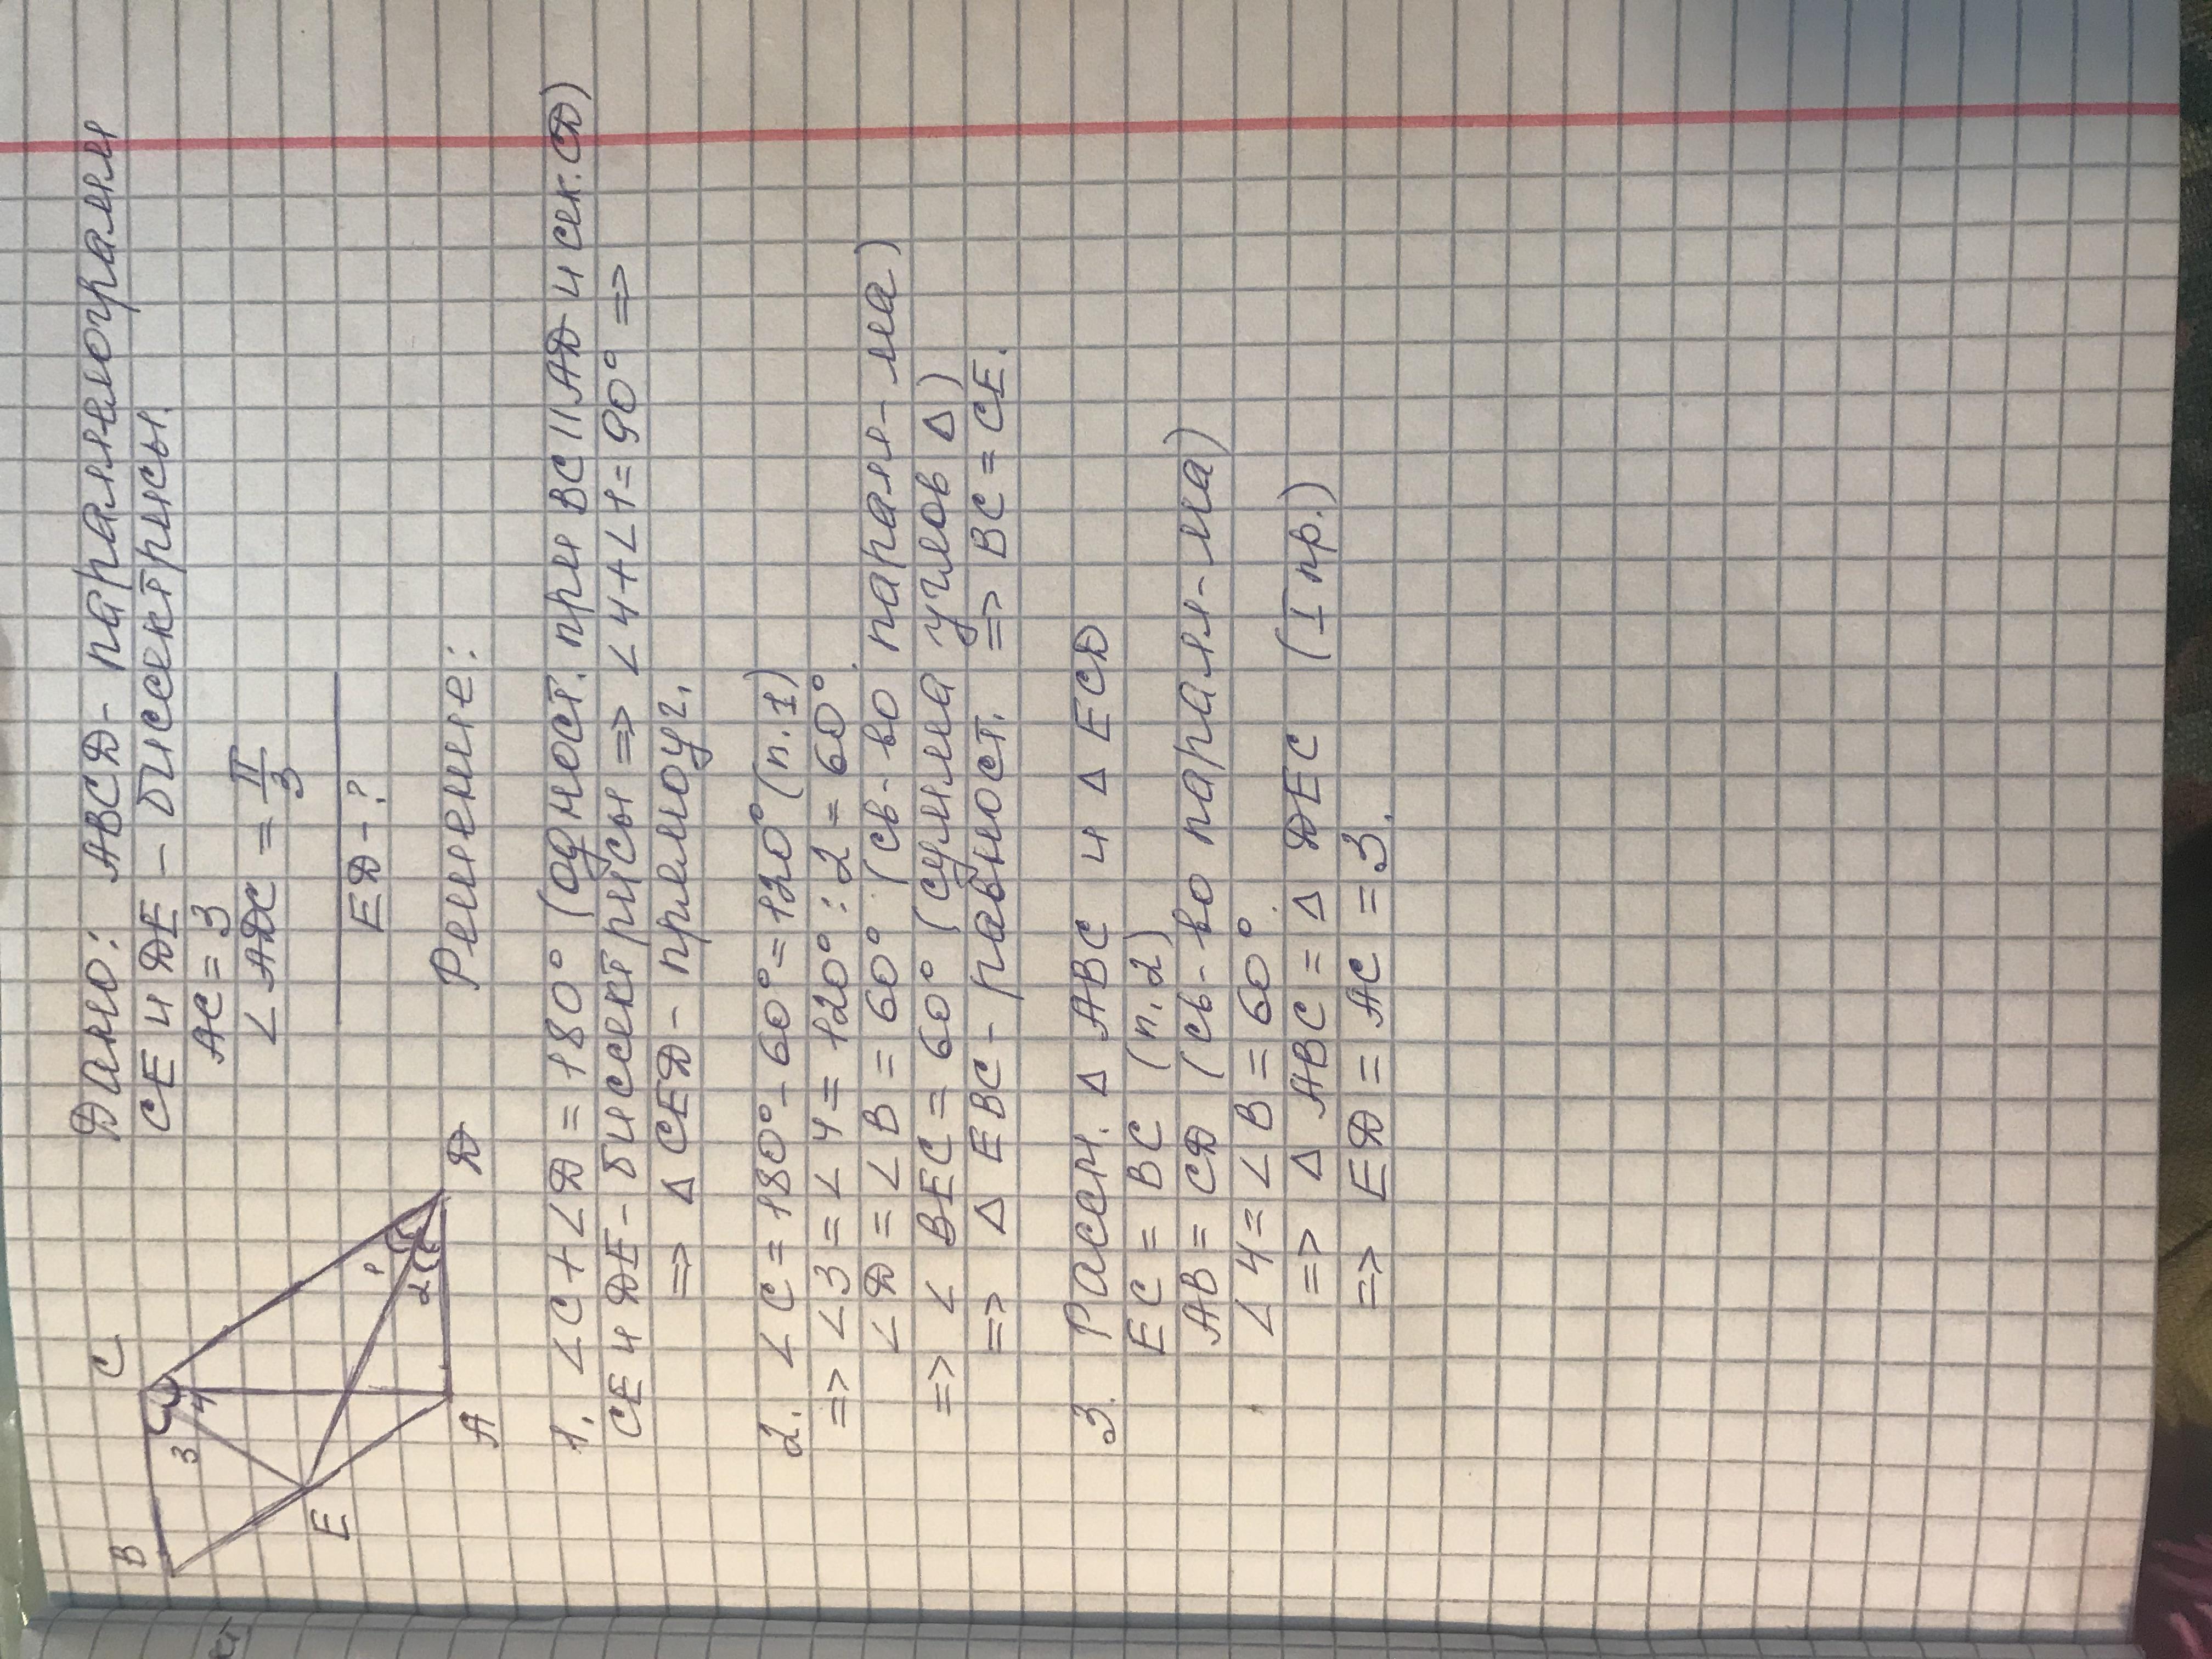 B
C
3
4
1
2
E
A
D
Дано: ABCD - параллелограмм
CE и DE - биссектрисы.
AC = 3
∠ ADC = π/3
ED - ?
Решение:
1. ∠C + ∠D = 180° (одност. при BC || AD и сек. CD)
CE и DE - биссектрисы => ∠4 + ∠1 = 90° =>
=> Δ CED - прямоуг.
2. ∠C = 180° - 60° = 120° (п. 1)
=> ∠3 = ∠4 = 120° : 2 = 60°.
∠D = ∠B = 60° (св-во паралл-ма)
=> ∠ BEC = 60° (сумма углов Δ)
=> Δ EBC - равност. => BC = CE.
3. Рассм. Δ ABC и Δ ECD
EC = BC (п. 2)
AB = CD (св-во паралл-ма)
∠4 = ∠B = 60°.
=> Δ ABC = Δ DEC (I пр.)
=> ED = AC = 3.